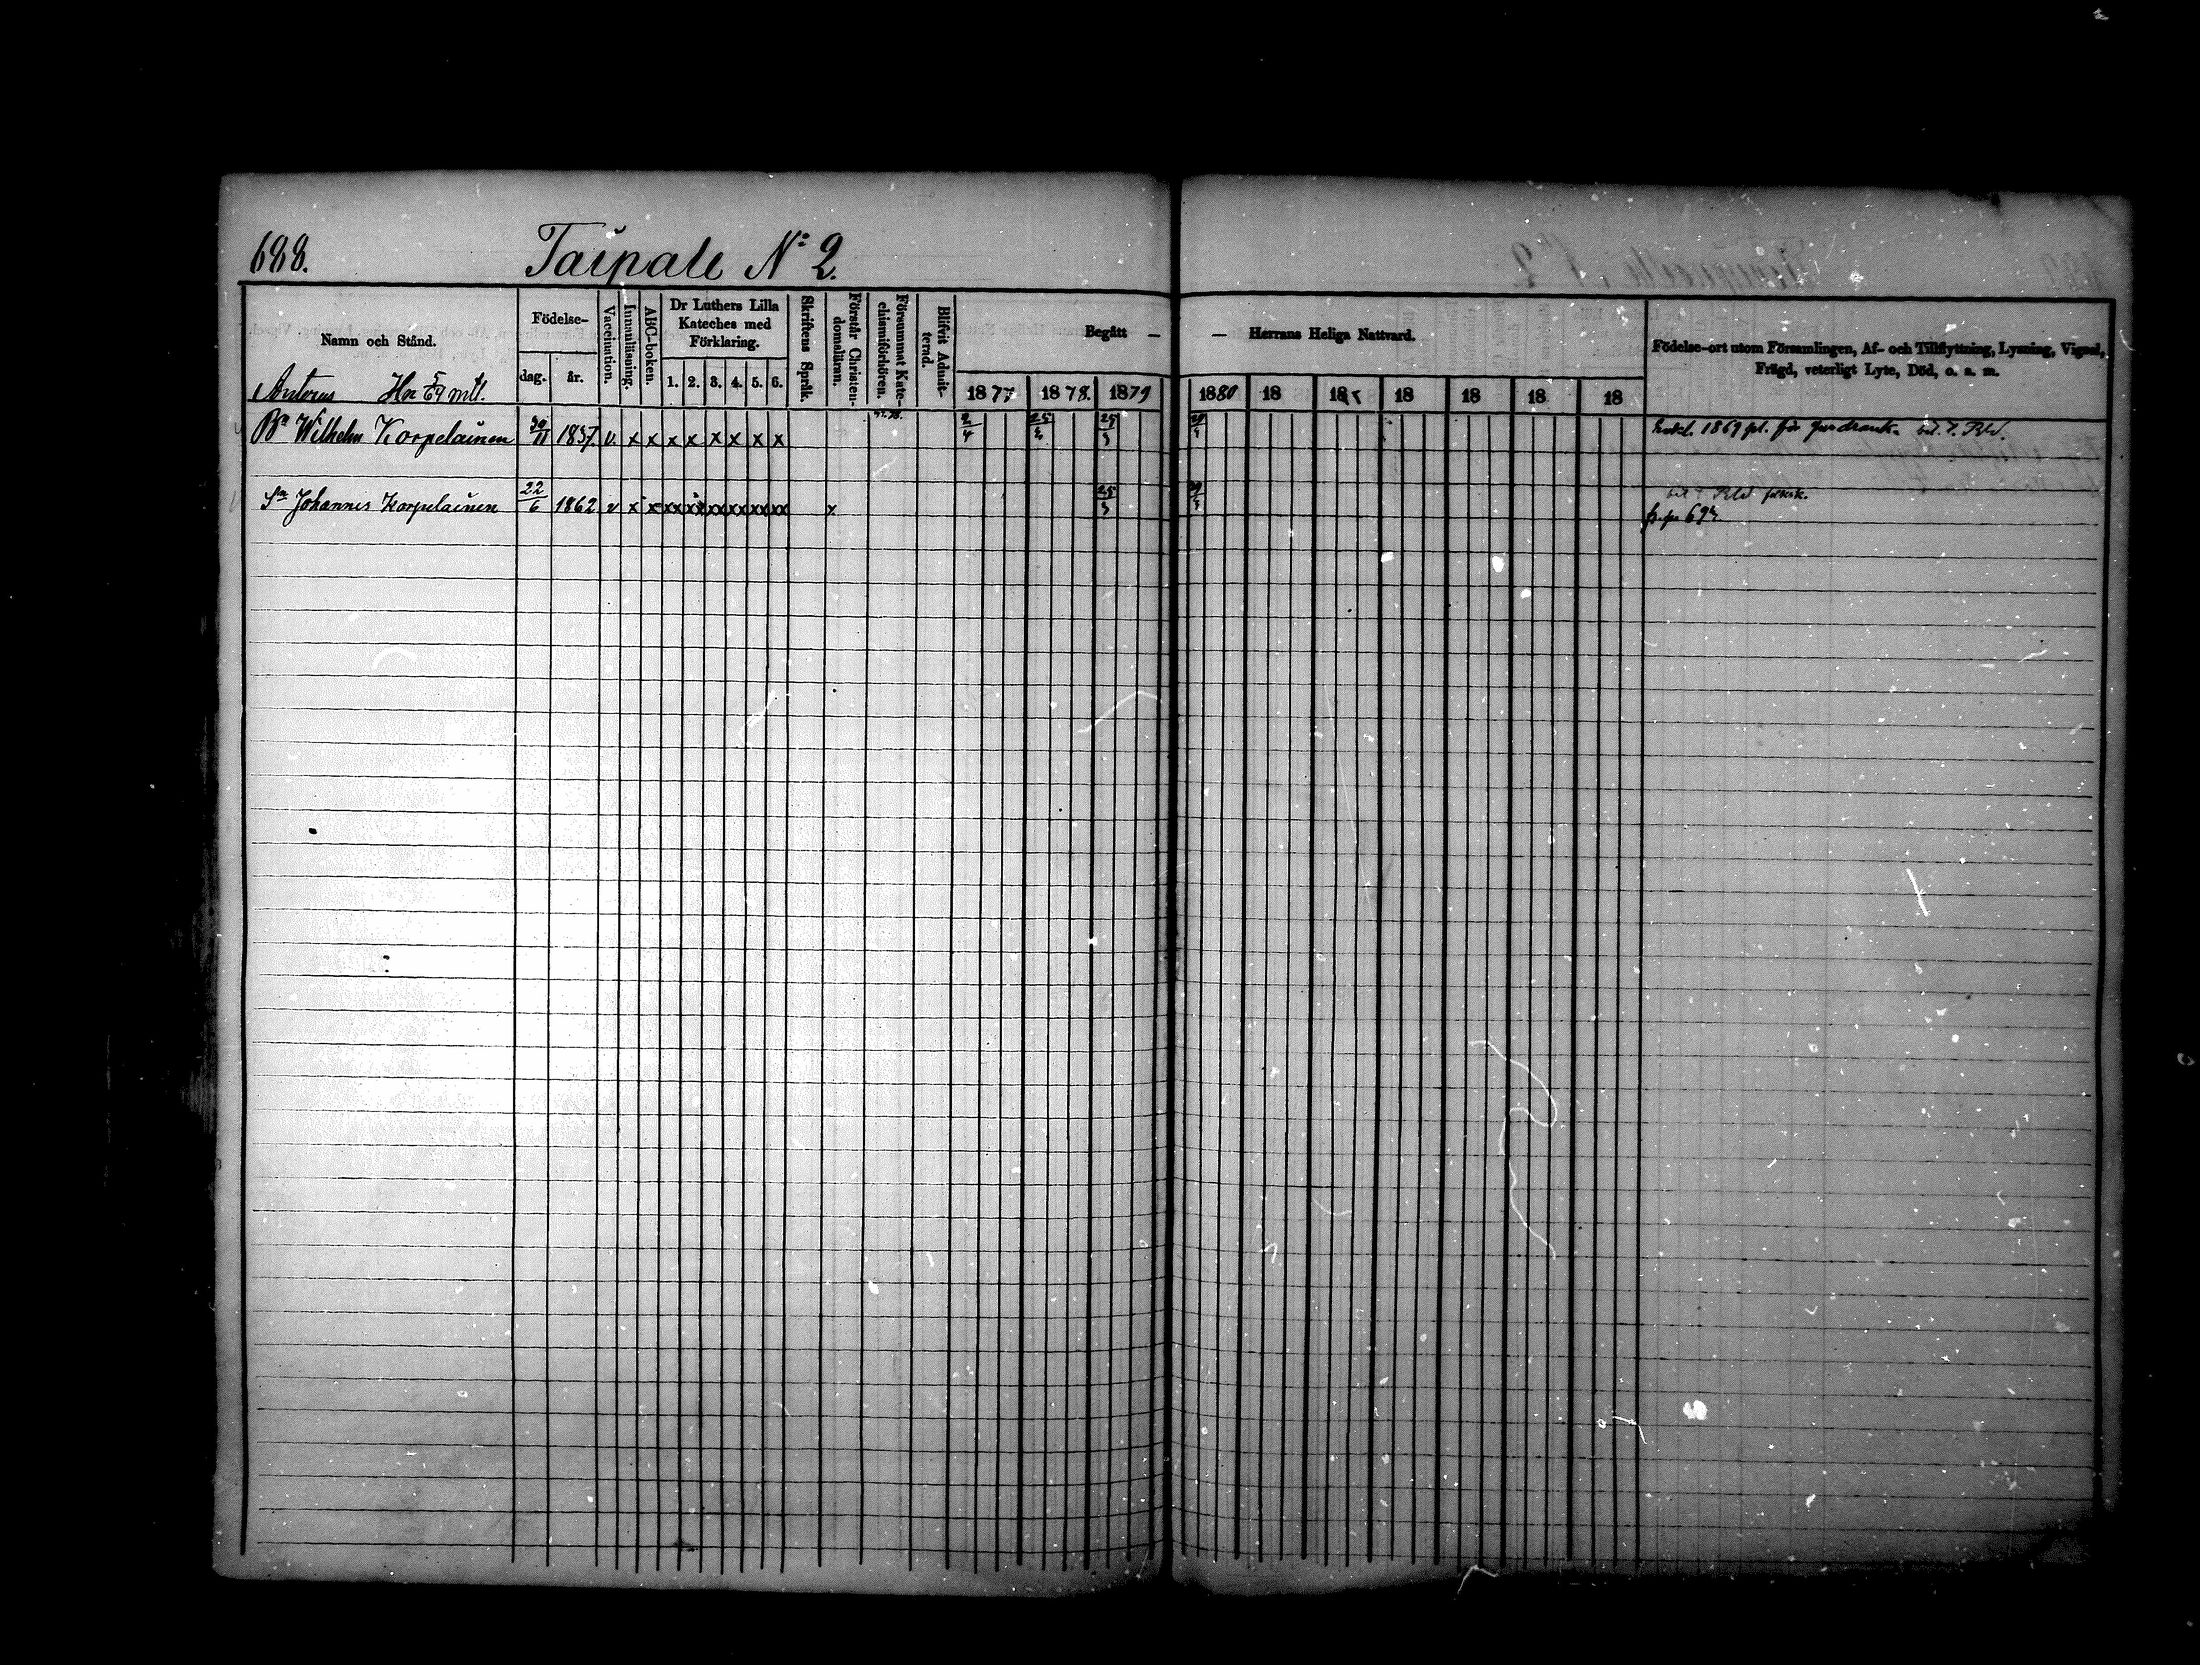 688. Taipale N:o 2.
Namn och Stånd.
Födelse-
dag. år.
Vaccination.
Innanläsning.
ABC-boken.
Dr Luthers Lilla
Kateches med
Förklaring.
1. 2. 3. 4. 5. 6.
Skriftens Språk.
Förstår Christen-
domsläran.
Försummat Kate-
chismiförhören.
Blifvit Admit-
terad.
Begått — — Herrans Heliga Nattvard.
1877 1878. 1879 1880 18 18 18 18 18 18
Födelse-ort utom Församlingen, Af- och Tillflyttning, Lysning, Vigsel,
Frägd, veterligt Lyte, Död, o. s. m.
mtl.
Br Wilhelm Korpelainen 30/11 1837. v x x x x x x x x 2/4 1869 för
Sn Johannes Korpelainen 22/6 1862 v x x x x x x x x x